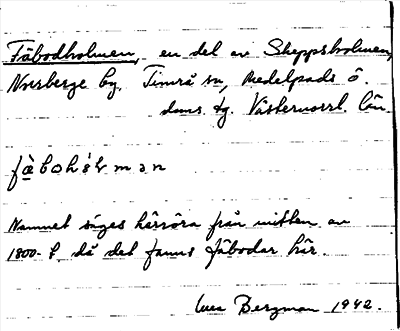 Fäbodholmen, en del av Skeppsholmen,
Norrberge by, Timrå sn, Medelpads ö.
doms. tg. Västernorrl. län.
fä̀bohɷ́lmən
Namnet säges härröra från mitten av
1800-t. då det fanns fäbodar här.
Bergman 1942.